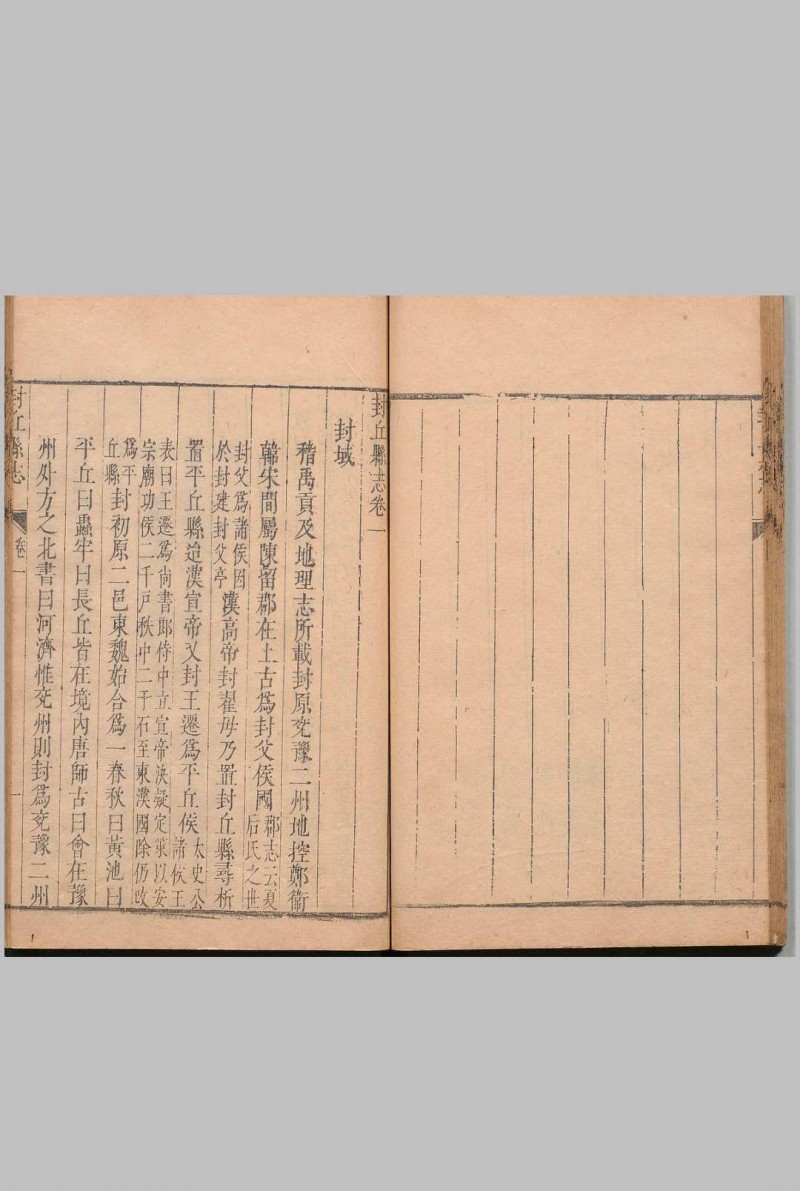 封丘縣志卷一
封域
稽禹貢及地理志所載封原兖豫二州地控鄭衞
韓宋間屬陳留郡在上古爲封父侯國郡志云夏
后氏之世
封父爲諸侯因
於封建封父亭漢高帝封翟母乃置封丘縣尋析
置平丘縣迨漢宣帝又封王遷爲平丘侯太史公
諸侯王
表曰王遷爲尚書郎侍中立宣帝決疑定策以安
宗廟功侯二千戸秩中二千石至東漢國除仍改
爲平
丘縣封初原二邑東魏始合爲一春秋曰黃池曰
平丘曰蟲牢曰長丘皆在境內唐師古曰會在豫
州外方之北書曰河濟惟兖州則封爲兖豫二州
封丘縣志
卷一
一